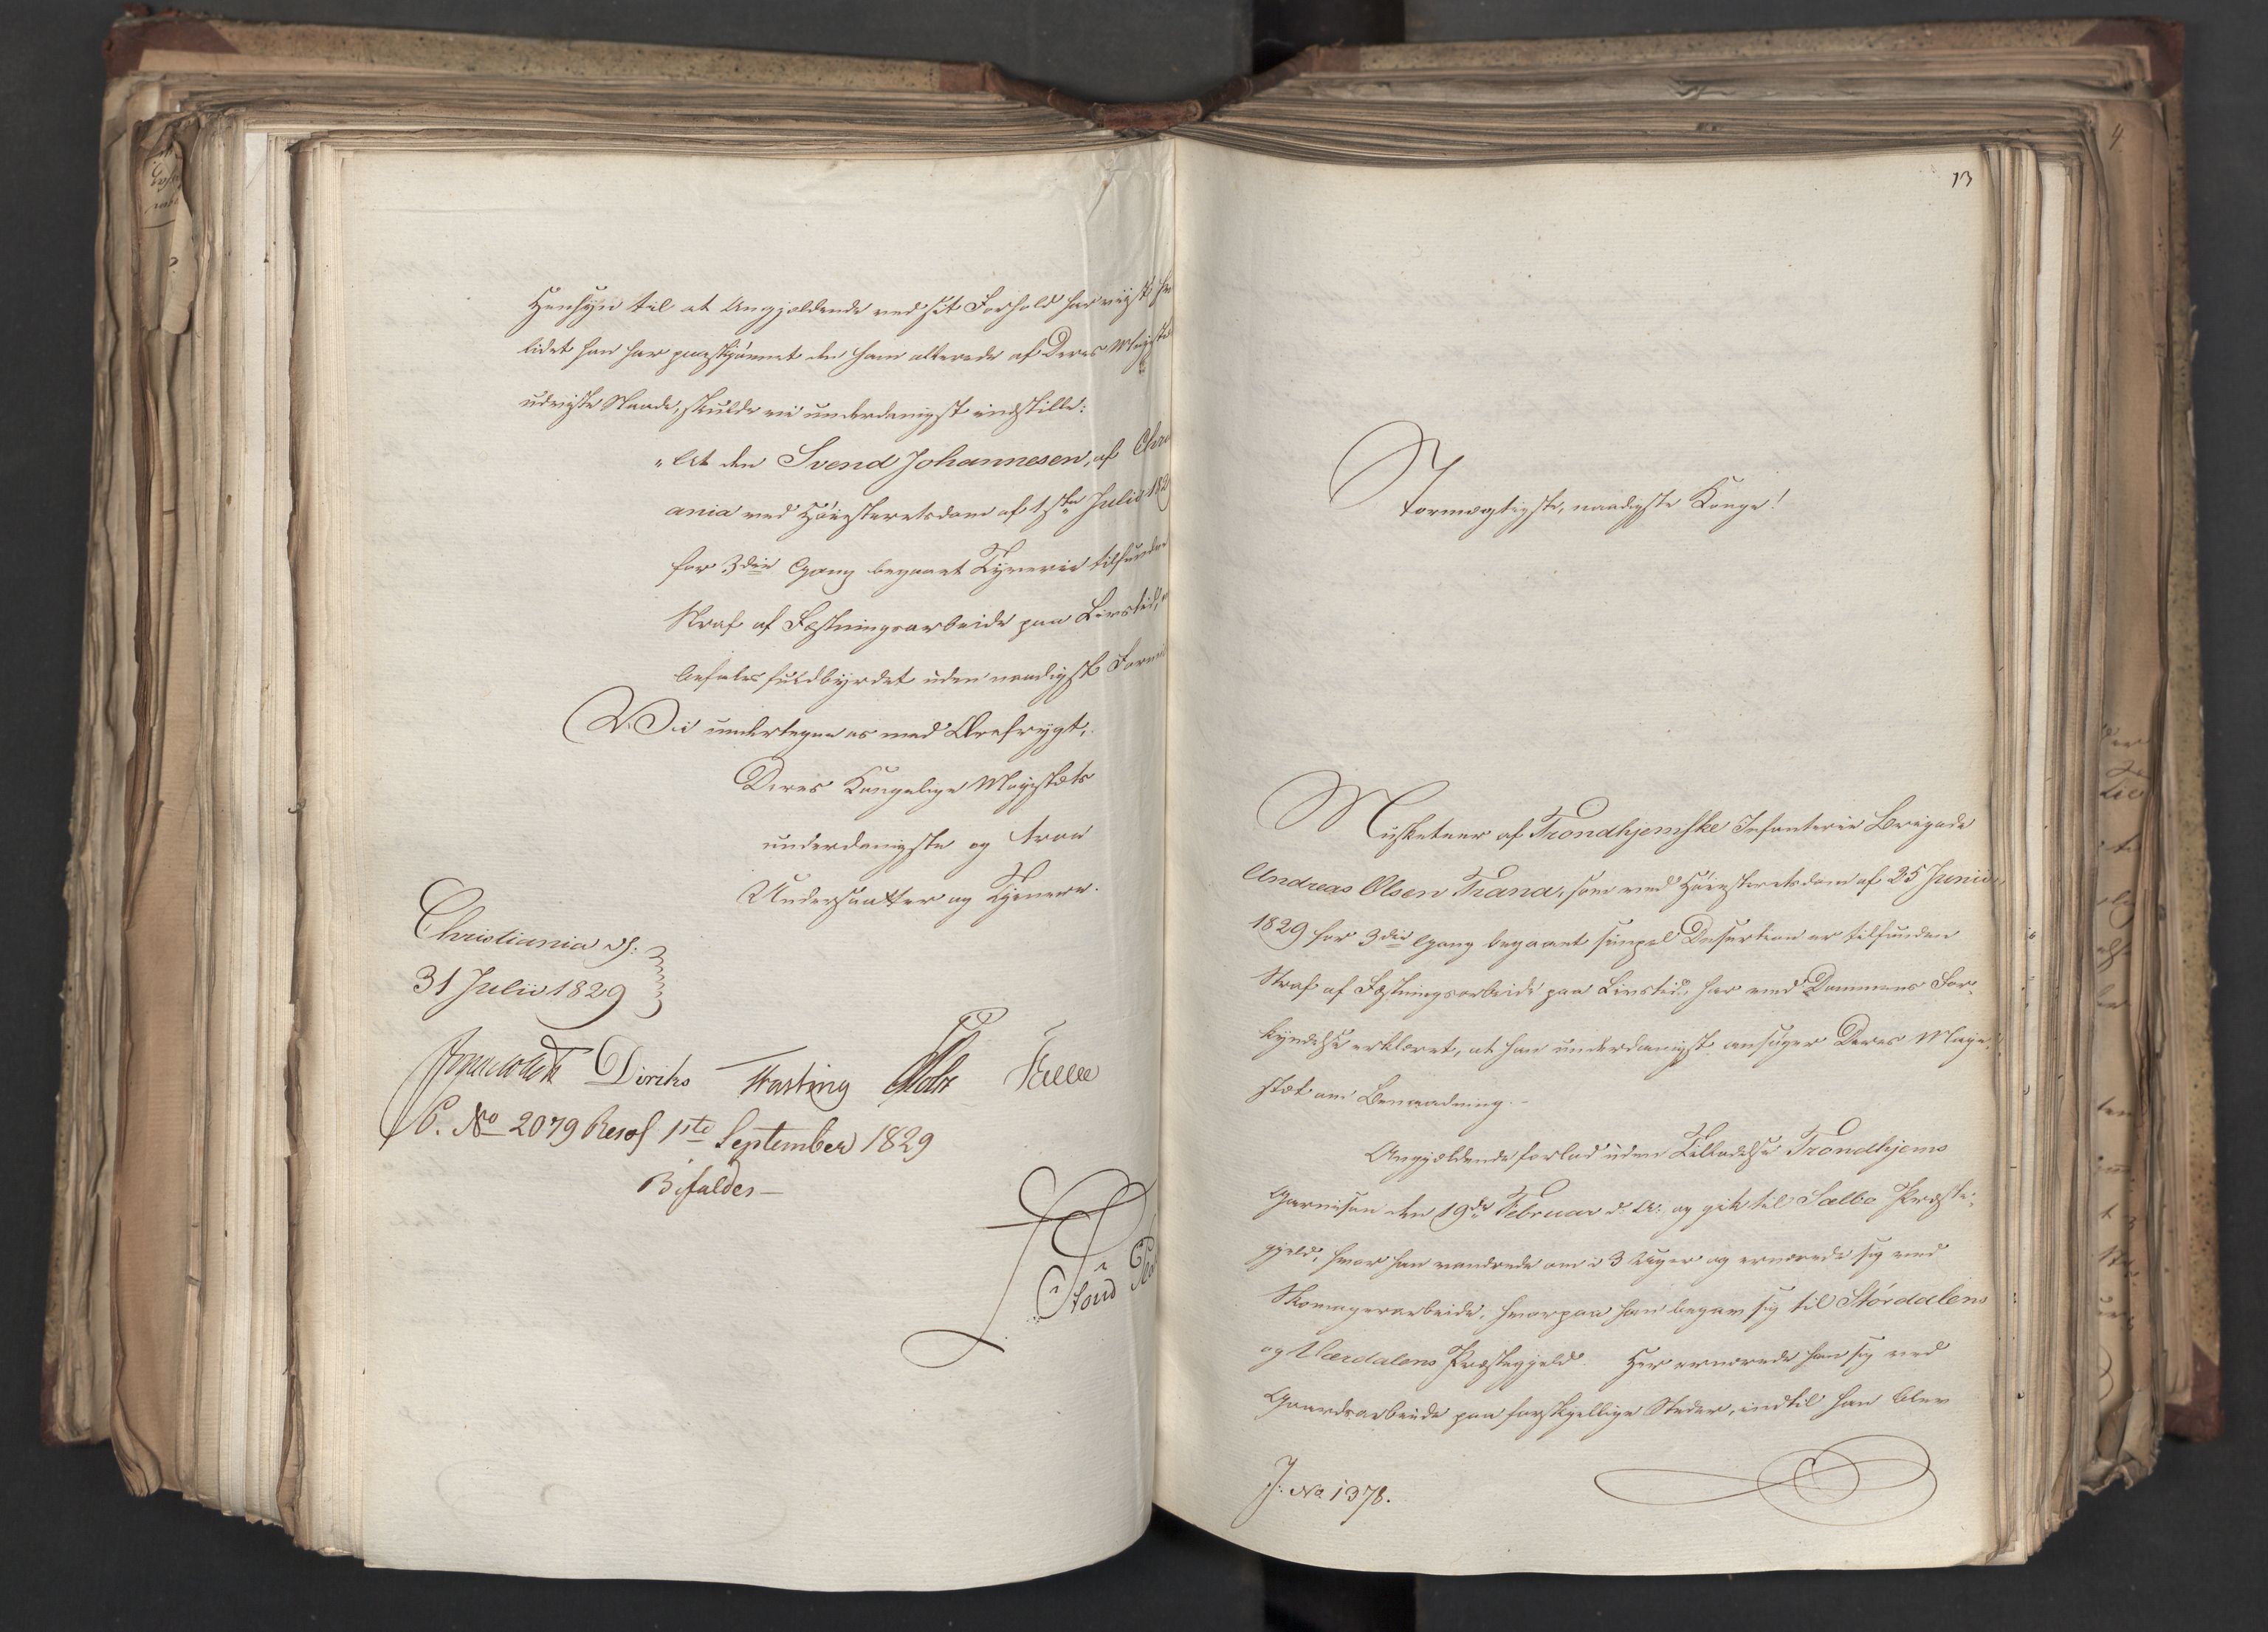 Hensyn til at Angjeldende ved sit Forhold har viist hvor
lidet han har paaskjönnet den ham allerede af Deres Majestæt
udviste Naade, skulde vi underdanigst indstille:
"At den Svend Johannesen, af Christi
ania ved Höiesteretsdom af 1ste Julii 182
for 3die Gang begaaet Tyverie tilfundne
Straf af Fæstningsarbeide paa Livstid,
befales fuldbyrdet uden naadigst Formil
Vi undertegne os med Ærefrygt,
Deres Kongelige Majestæts
underdanigste og troe
Undersaatter og Tjenere.
Christiania d:
31 Julii 1829
Diriks Fasting Falsen
P. No 2079 Resol 1ste September 1829
Bifaldes —
13
Stormægtigste, naadigste Konge!
Musketeer af Trondhjemske Infanterie Brigade
Andreas Olsen Trana, som ved Höiesteretsdom af 25 Junii
1829 for 3die Gang begaaet simpel Desertion er tilfunden
Straf af Fæstningsarbeide paa Livstid, har ved Dommens For-
kyndelse erklæret, at han underdanigst ansöger Deres Maje-
stæt om Benaadning. -
Angjeldende forlod uden Tilladelse Trondhjems
Garnison den 19de Februar d: A: og gik til Sælbo Præste-
gjeld, hvor han vandrede om i 3 Uger og ernærede sig ved
Skomagerarbeide, hvorpaa han begav sig til Stördalens
og Værdalens Præstegjeld. Her ernærede han sig ved
Gaardsarbeide paa forskjellige Steder, indtil han blev
J: No 1378.